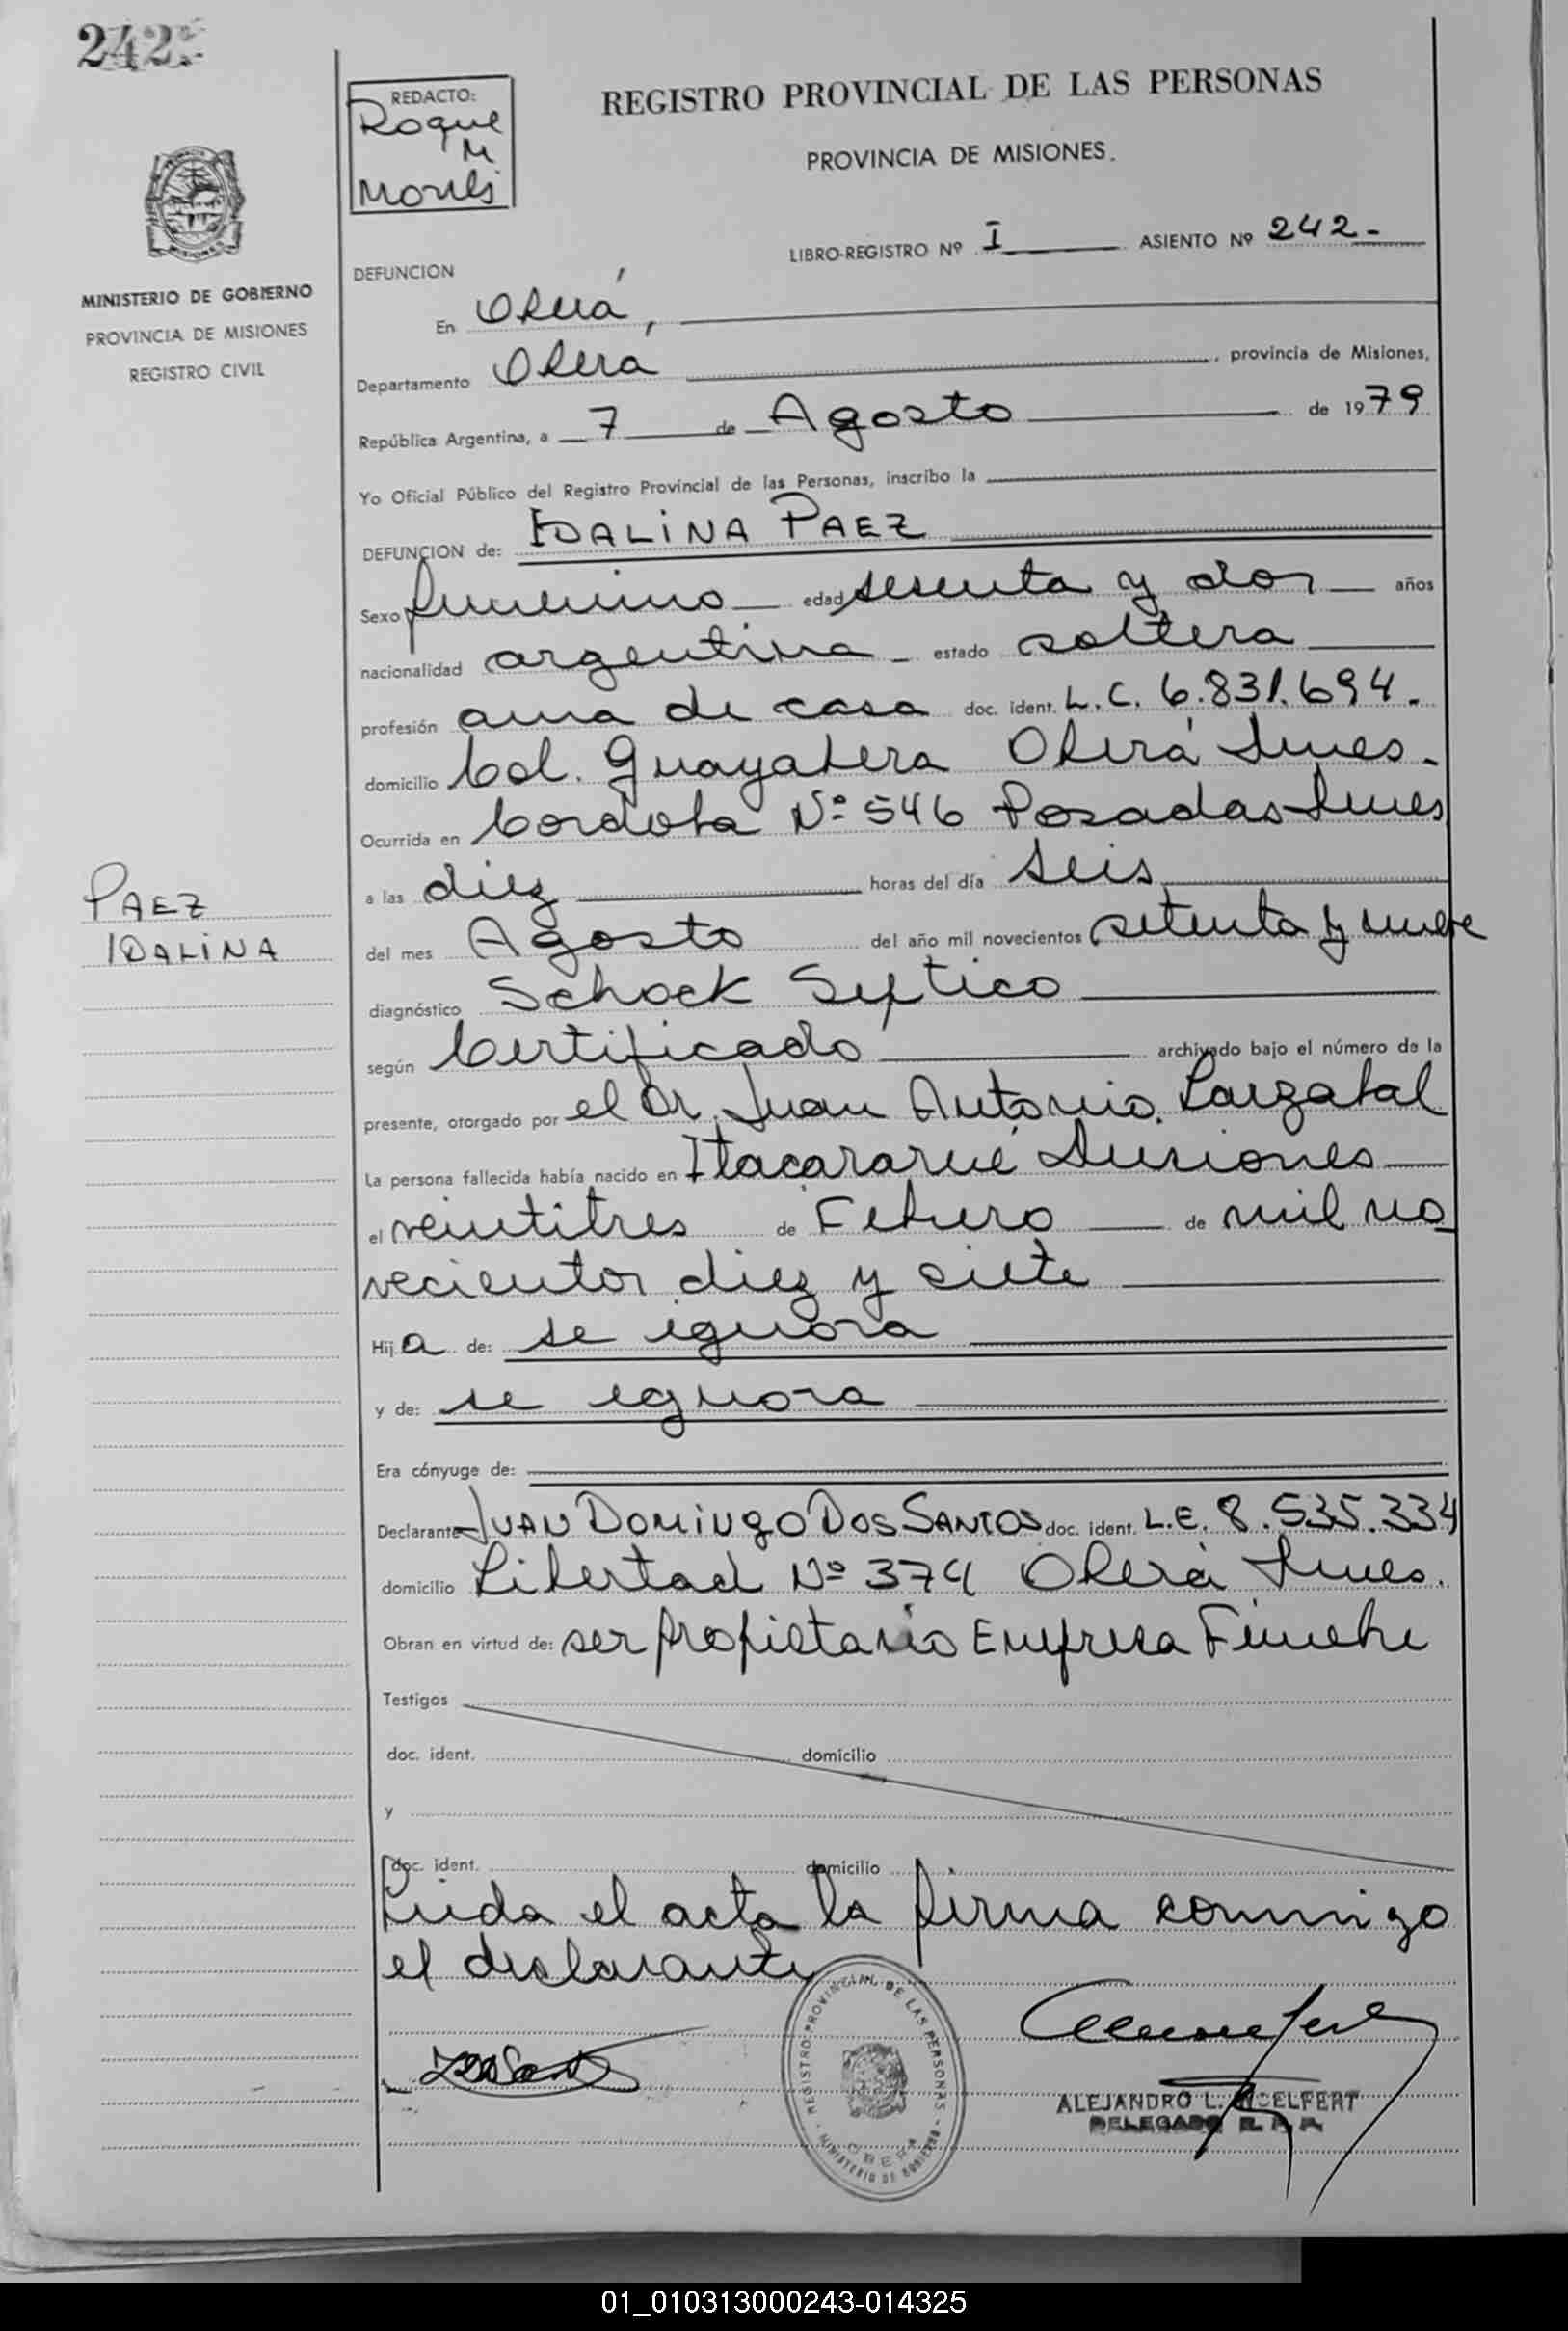 242
REDACTO:
Roque
M
REGISTRO PROVINCIAL DE LAS PERSONAS
PROVINCIA DE MISIONES.
LIBRO-REGISTRO Nº I ASIENTO Nº 242-
MINISTERIO DE GOBIERNO
PROVINCIA DE MISIONES
REGISTRO CIVIL
DEFUNCION
En Oberá,
Departamento Oberá, provincia de Misiones,
República Argentina, a 7 de Agosto de 1979
Yo Oficial Público del Registro Provincial de las Personas, inscribo la
DEFUNCION de: IDALINA PAEZ
Sexo femenino edad sesenta y dos años
nacionalidad argentina estado soltera
profesión ama de casa doc. ident. L.C. 6.831.694.
domicilio Col. Guayabera Oberá Mnes.
Ocurrida en Cordoba Nº 546 Posadas Mnes
a las diez horas del día seis
PAEZ
IDALINA
del mes Agosto del año mil novecientos setenta y nueve
diagnóstico Schock Septico
según Certificado archivado bajo el número de la
presente, otorgado por el Dr. Juan Antonio
La persona fallecida había nacido en Itacararué Misiones
el veintitres de Febrero de mil no
vecientos diez y siete
Hija de: se ignora
y de: se ignora
Era cónyuge de:
Declarante JUAN DOMINGO DOS SANTOS doc. ident. L.E. 8.535.334
domicilio Libertad Nº 374 Oberá Mnes.
Obran en virtud de: ser propietario Empresa Funebre
Testigos
doc. ident. domicilio
y
doc. ident. domicilio
Leida el acta la firma conmigo
el declarante
REGISTRO PROVINCIAL DE LAS PERSONAS
MINISTERIO DE GOBIERNO
OBERA
ALEJANDRO L.
DELEGADO R.P.P.
01_010313000243-014325